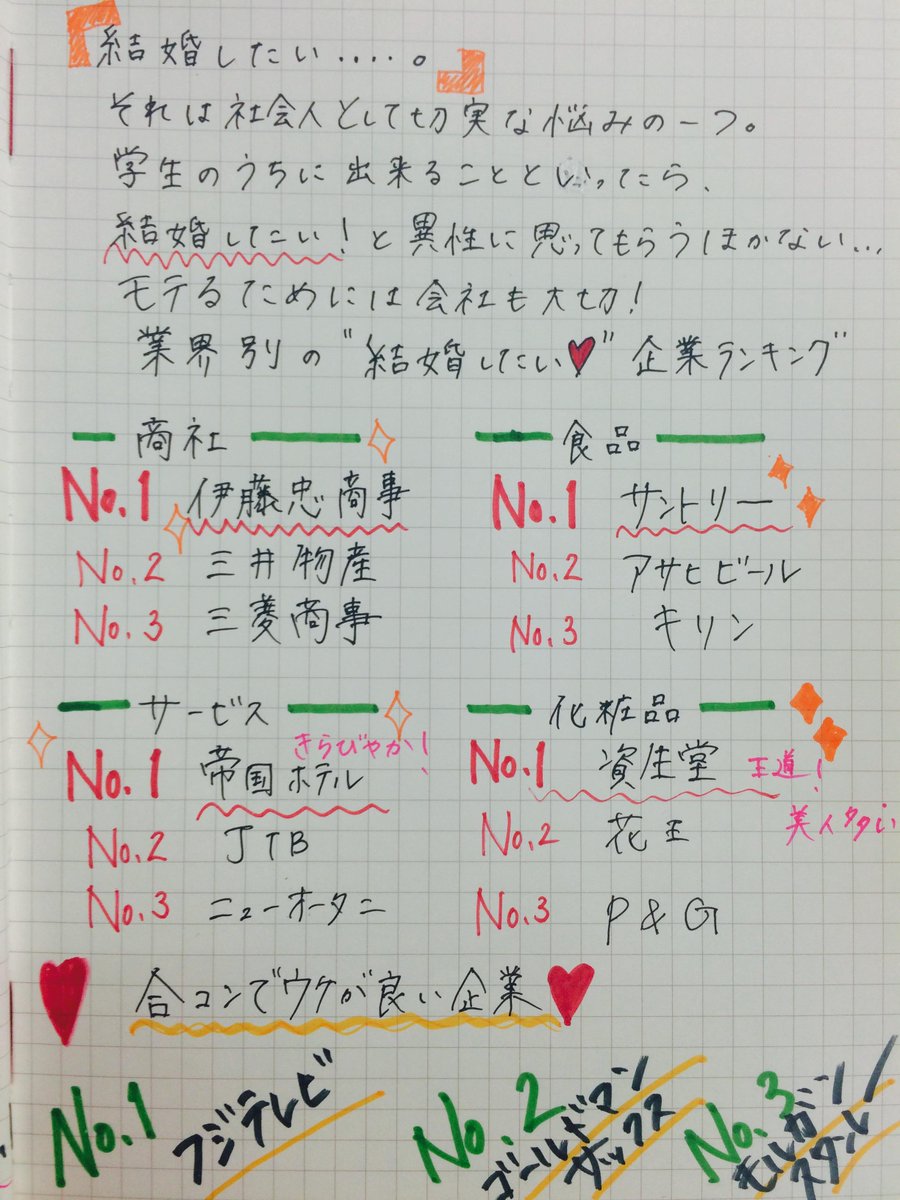 『結婚したい.....。』
それは社会人として切実な悩みの一つ。
学生のうちに出来ることといったら、
結婚したい!と異性に思ってもらうほかない...
モテるためには会社も大切!
業界別の"結婚したい♥"企業ランキング
商社
No.1 伊藤忠商事
No.2 三井物産
No.3 三菱商事
食品
No.1 サントリー
No.2 アサヒビール
No.3 キリン
サービス
きらびやか!
No.1 帝国ホテル
No.2 JTB
No.3 ニューオータニ
化粧品
No.1 資生堂 王道!
美人多い
No.2 花王
No.3 P&G
合コンでウケが良い企業
No.1 フジテレビ
No.2 ゴールドマン
ザックス
No.3 モルガン